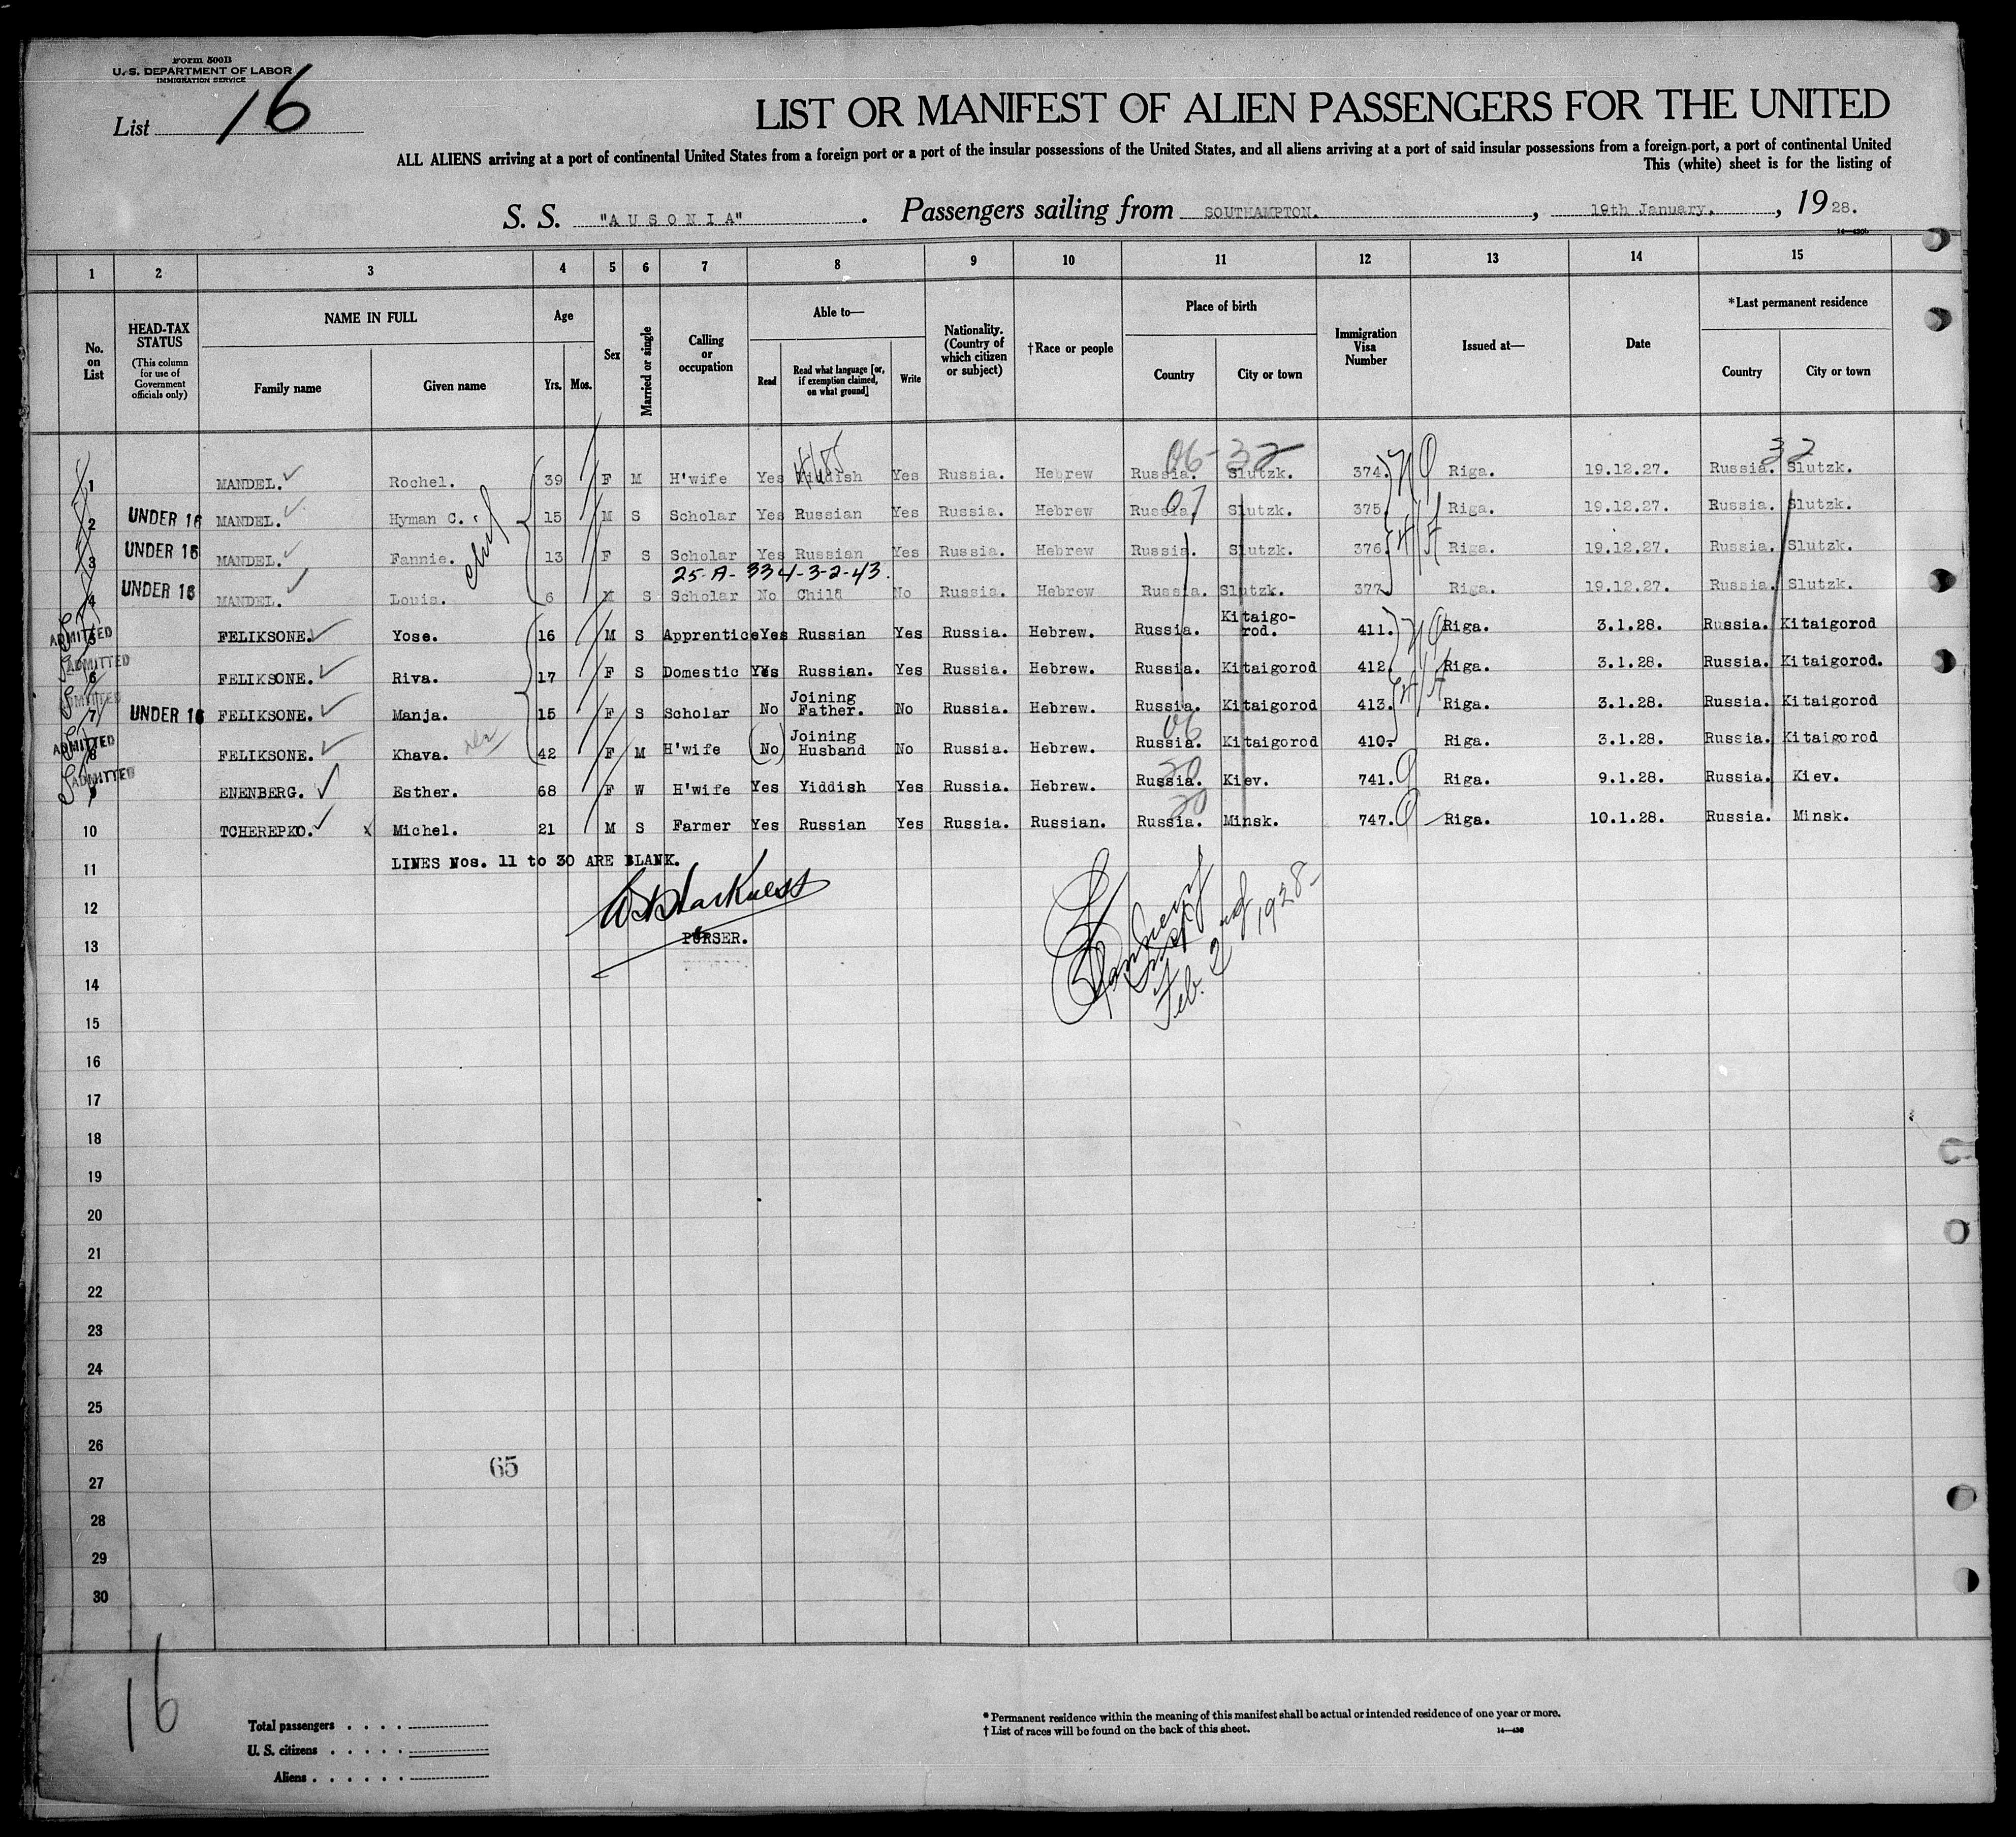 Form 500B
U. S. DEPARTMENT OF LABOR
IMMIGRATION SERVICE
List 16
LIST OR MANIFEST OF ALIEN PASSENGERS FOR THE UNITED
ALL ALIENS arriving at a port of continental United States from a foreign port or a port of the insular possessions of the United States, and all aliens arriving at a port of said insular possessions from a foreign port, a port of continental United
This (white) sheet is for the listing of
S. S. "AUSONIA". Passengers sailing from SOUTHAMPTON., 19th January., 1928.
1 2 3 4 5 6 7 8 9 10 11 12 13 14 15
No. on List
HEAD-TAX STATUS (This column for use of Government officials only)
NAME IN FULL
Family name Given name
Age
Yrs. Mos.
Sex
Married or single
Calling or occupation
Able to—
Read
Read what language [or, if exemption claimed, on what ground]
Write
Nationality. (Country of which citizen or subject)
†Race or people
Place of birth
Country City or town
Immigration Visa Number
Issued at—
Date
*Last permanent residence
Country City or town
06-32 32
1 MANDEL. Rochel. 39 F M H'wife Yes Yiddish Yes Russia. Hebrew Russia. Slutzk. 374. Riga. 19.12.27. Russia. Slutzk.
07
2 UNDER 16 MANDEL. Hyman C. 15 M S Scholar Yes Russian Yes Russia. Hebrew Russia. Slutzk. 375. Riga. 19.12.27. Russia. Slutzk.
3 UNDER 16 MANDEL. Fannie. 13 F S Scholar Yes Russian Yes Russia. Hebrew Russia. Slutzk. 376. Riga. 19.12.27. Russia. Slutzk.
25-A-334-3-2-43.
4 UNDER 16 MANDEL. Louis. 6 M S Scholar No Child No Russia. Hebrew Russia. Slutzk. 377. Riga. 19.12.27. Russia. Slutzk.
ADMITTED 5 FELIKSONE. Yose. 16 M S Apprentice Yes Russian Yes Russia. Hebrew. Russia. Kitaigo-rod. 411. Riga. 3.1.28. Russia. Kitaigorod
ADMITTED 6 FELIKSONE. Riva. 17 F S Domestic Yes Russian. Yes Russia. Hebrew. Russia. Kitaigorod 412. Riga. 3.1.28. Russia. Kitaigorod.
ADMITTED 7 UNDER 16 FELIKSONE. Manja. 15 F S Scholar No Joining Father. No Russia. Hebrew. Russia. Kitaigorod 413. Riga. 3.1.28. Russia. Kitaigorod
06
ADMITTED 8 FELIKSONE. Khava. 42 F M H'wife (No) Joining Husband No Russia. Hebrew. Russia. Kitaigorod 410. Riga. 3.1.28. Russia. Kitaigorod
20
ADMITTED 9 ENENBERG. Esther. 68 F W H'wife Yes Yiddish Yes Russia. Hebrew. Russia. Kiev. 741. Riga. 9.1.28. Russia. Kiev.
20
10 TCHEREPKO. x Michel. 21 M S Farmer Yes Russian Yes Russia. Russian. Russia. Minsk. 747. Riga. 10.1.28. Russia. Minsk.
11 LINES Nos. 11 to 30 ARE BLANK.
12
13 PURSER.
Feb. 2nd 1928-
14
15
16
17
18
19
20
21
22
23
24
25
26
65
27
28
29
30
16
Total passengers
U. S. citizens
Aliens
* Permanent residence within the meaning of this manifest shall be actual or intended residence of one year or more.
† List of races will be found on the back of this sheet.
14—430